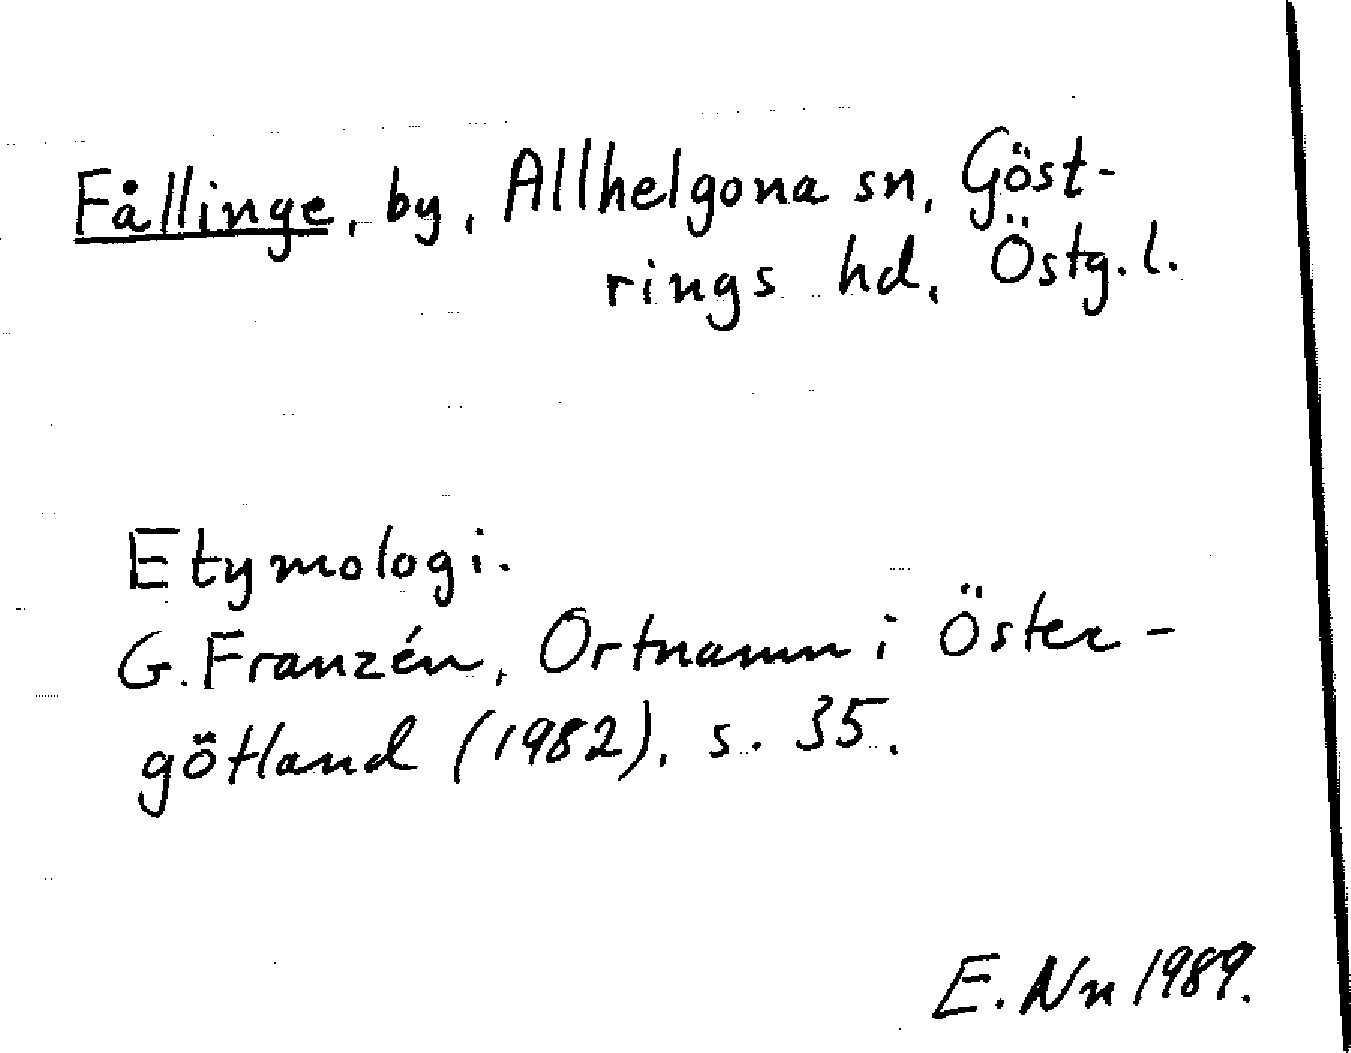 Fållinge, by, Allhelgona sn, Göst-
rings hd, Östg. l.
Etymologi.
G. Franzén, Ortnamn i Öster-
götland (1982), s. 35.
E. Nn 1989.